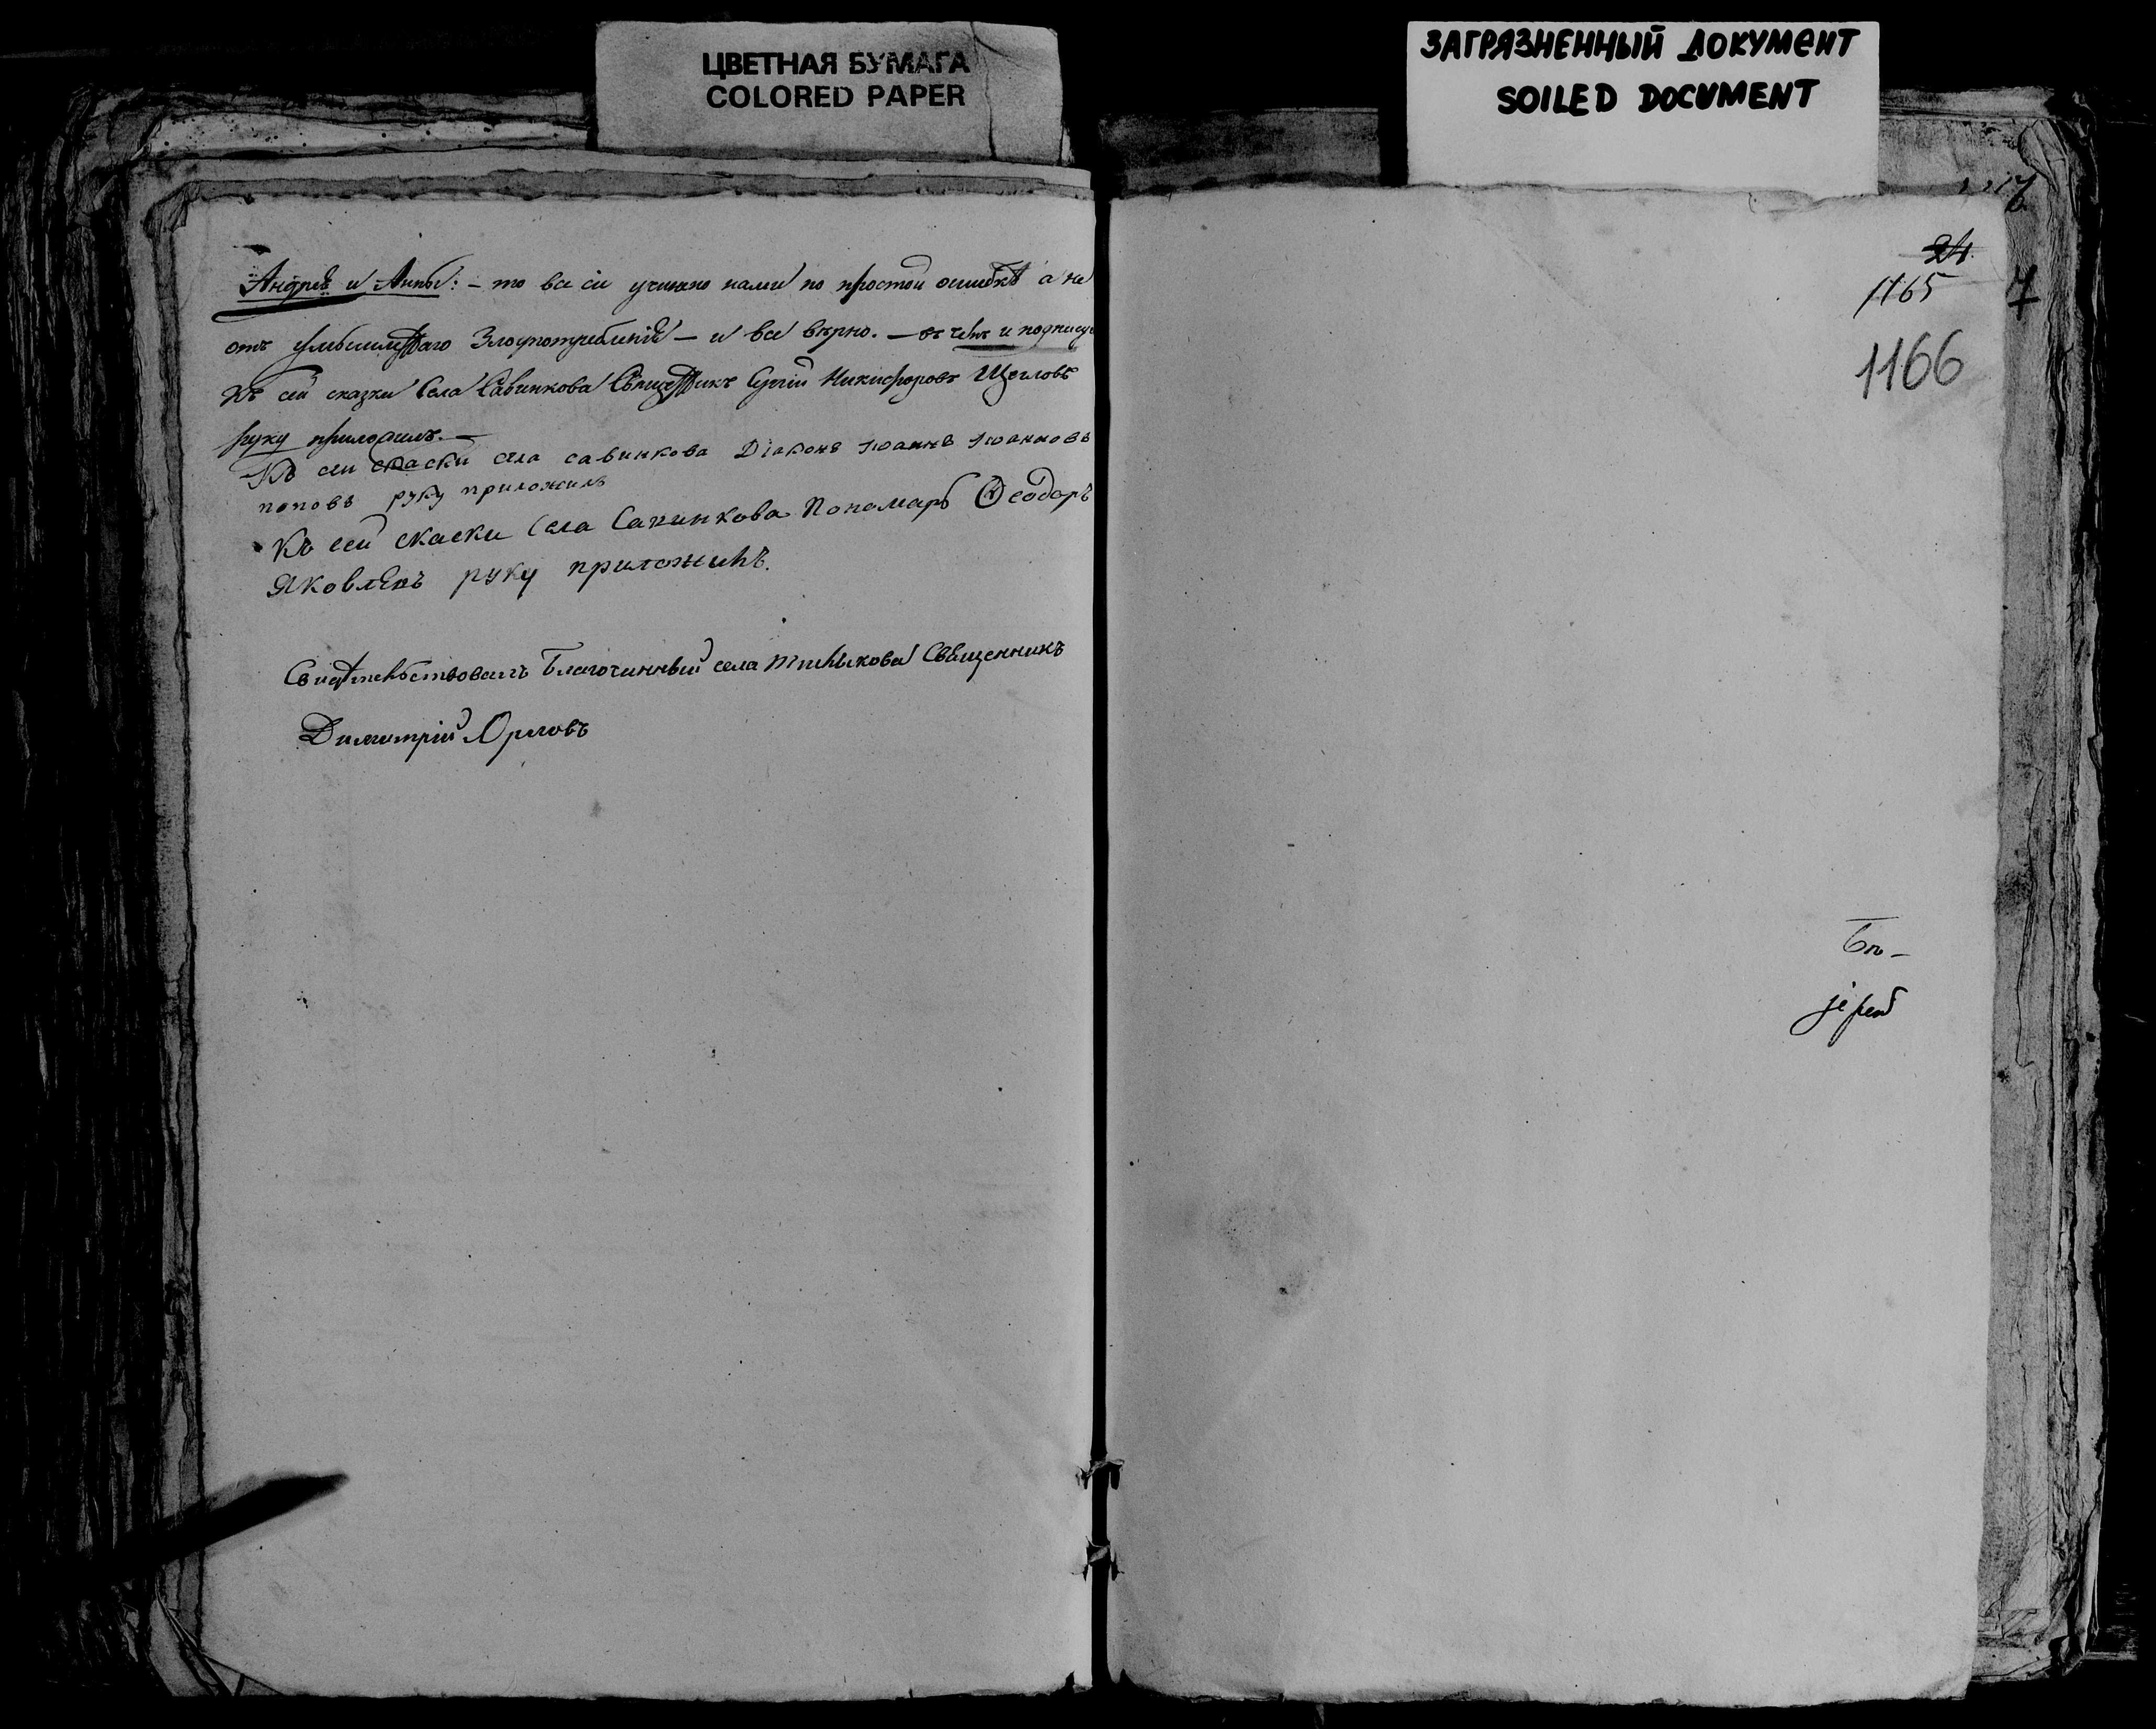 ЦВЕТНАЯ БУМАГА
COLORED PAPER
ЗАГРЯЗНЕННЫЙ ДОКУМЕНТ
SOILED DOCUMENT
Андрей и Анны: – то все сіе учинено нами по простой ошибкѣ а не
отъ умышленнаго Злоупотребленія – и все вѣрно. – въ чемъ и подписуемся
Къ сей сказки Села Савинкова Священникъ Сергій Никифоровъ Щегловъ
руку приложилъ. –
Къ сеи скаски села савинкова Діаконъ Іоаннъ Іоанновъ
поповъ руку приложилъ
Къ сей скаски Села Савинкова Пономарь Ѳеодоръ
Яковлевъ руку приложилъ.
Свидѣтельствовалъ Благочинный села Священникъ
Димитрій Орловъ
24
1165
7
1166